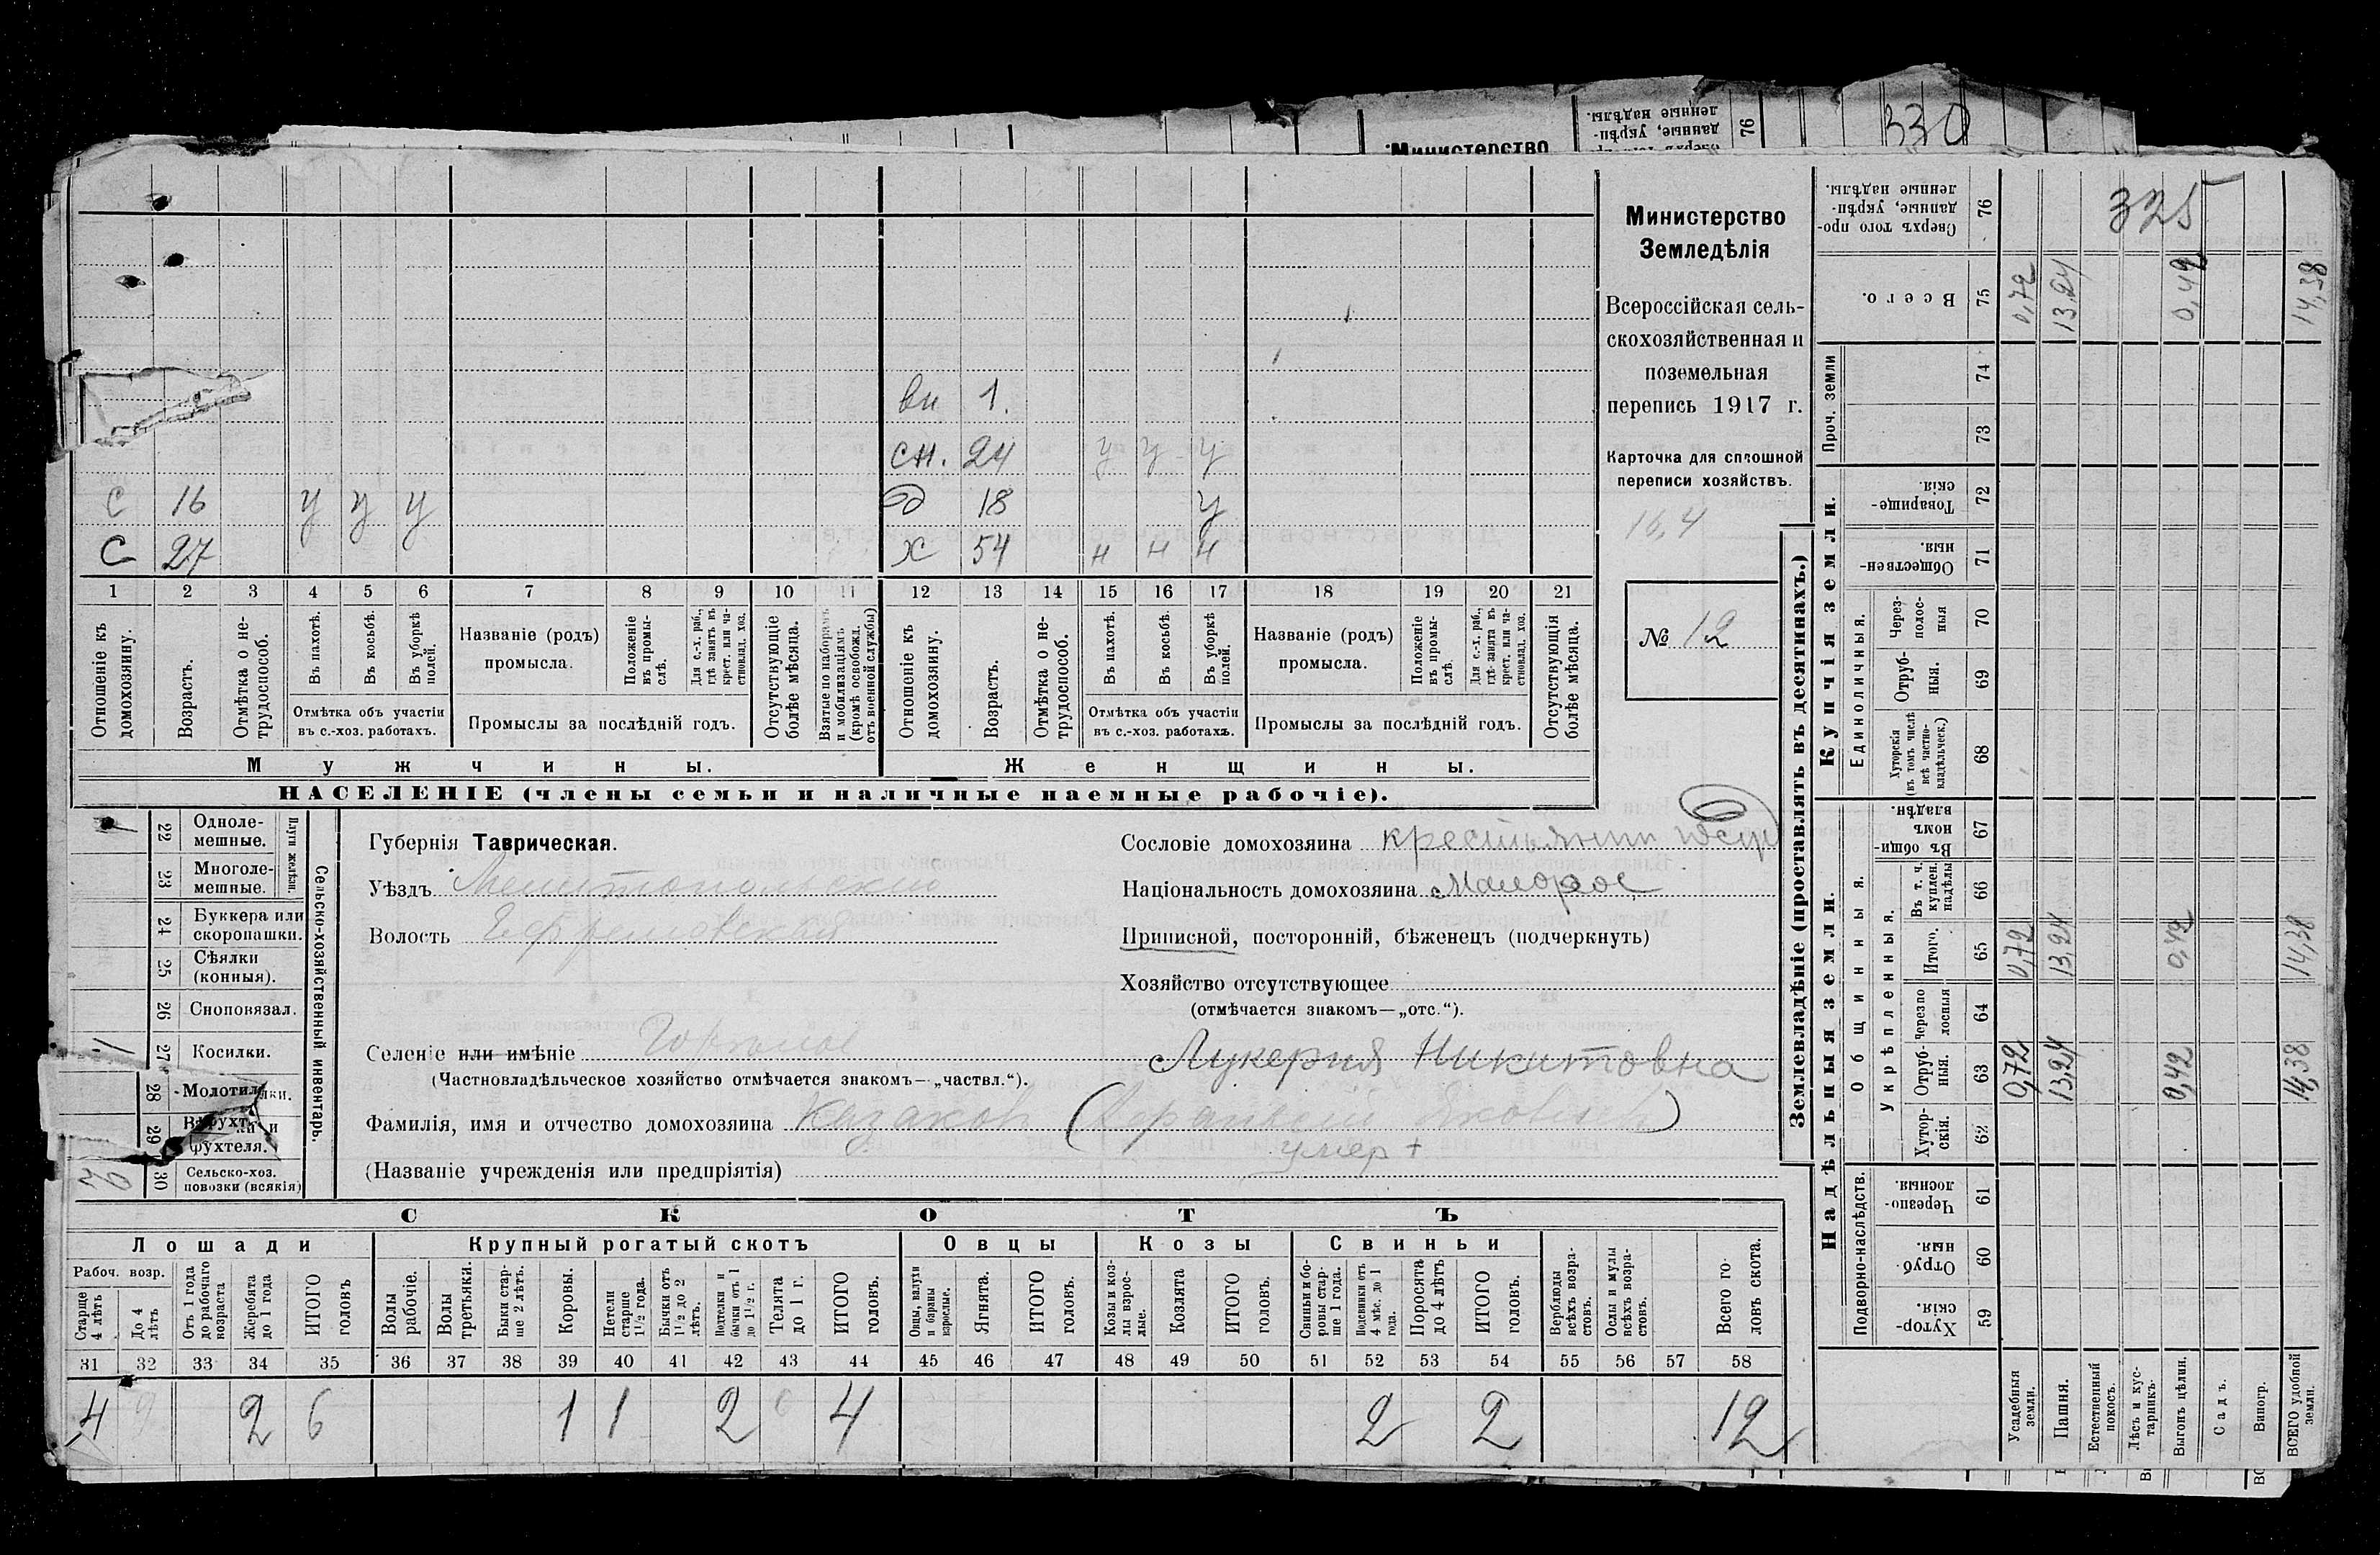 330
Министерство
325
Министерство
Земледѣлія
Всероссійская сель-
скохозяйственная и
поземельная
перепись 1917 г.
Карточка для сплошной
переписи хозяйствъ.
16,4
№ 12
вн 1.
сн. 24 у у у
С 16 у у у
д 18 у
С 27
х 54 н н н
1 2 3 4 5 6 7 8 9 10 11 12 13 14 15 16 17 18 19 20 21
Отношеніе къ домохозяину.
Возрастъ.
Отмѣтка о не-трудоспособ.
Въ пахотѣ.
Въ косьбѣ.
Въ уборкѣ полей.
Отмѣтка объ участіи въ с.-хоз. работахъ.
Названіе (родъ) промысла.
Положеніе въ промы-слѣ.
Для с.-х. раб., гдѣ занятъ въ крест. или ча-стновлад. хоз.
Промыслы за послѣдній годъ.
Отсутствующіе болѣе мѣсяца.
Взятые по наборамъ и мобилизаціямъ (кромѣ освобожд. отъ военной службы)
Отношеніе къ домохозяину.
Возрастъ.
Отмѣтка о не-трудоспособ.
Въ пахотѣ.
Въ косьбѣ.
Въ уборкѣ полей.
Отмѣтка объ участіи въ с.-хоз. работахъ.
Названіе (родъ) промысла.
Положеніе въ промы-слѣ.
Для с.-х. раб., гдѣ занята въ крест. или ча-стновлад. хоз.
Промыслы за послѣдній годъ.
Отсутствующія болѣе мѣсяца.
Мужчины.
Женщины.
НАСЕЛЕНІЕ (члены семьи и наличные наемные рабочіе).
Сельско-хозяйственный инвентарь.
Плуги желѣзн.
22 Одноле-мешные.
23 Многоле-мешные.
24 Буккера или скоропашки.
25 Сѣялки (конныя).
26 Сноповязал.
27 Косилки. 1
28 Молотилки.
29
фухтеля.
30 Сельско-хоз. повозки (всякія)
Губернія Таврическая.
Уѣздъ Мелитопольскій
Волость Ефремовская
Селеніе или имѣніе
(Частновладѣльческое хозяйство отмѣчается знакомъ—„частвл.“).
Фамилія, имя и отчество домохозяина Казаков
умер +
(Названіе учрежденія или предпріятія)
Сословіе домохозяина крестьянин
Національность домохозяина Малорос
Приписной, посторонній, бѣженецъ (подчеркнуть)
Хозяйство отсутствующее
(отмѣчается знакомъ—„отс.“).
Лукерия Никитовна
СКОТЪ
Лошади
Крупный рогатый скотъ
Овцы
Козы
Свиньи
Рабоч. возр.
Старше 4 лѣтъ
До 4 лѣтъ
Отъ 1 года до рабочаго возраста
Жеребята до 1 года
ИТОГО головъ
Волы рабочіе.
Волы третьяки.
Быки стар-ше 2 лѣтъ.
Коровы.
Нетели старше 1 1/2 года.
Бычки отъ 1 1/2 до 2 лѣтъ.
Подтелки и бычки отъ 1 до 1 1/2 г.
Телята до 1 г.
ИТОГО головъ.
Овцы, валухи и бараны взрослые.
Ягнята.
ИТОГО головъ.
Козы и коз-лы взрос-лые.
Козлята
ИТОГО головъ.
Свиньи и бо-ровы стар-ше 1 года.
Подсвинки отъ 4 мѣс. до 1 года.
Поросята до 4 лѣтъ
ИТОГО головъ.
Верблюды всѣхъ возра-стовъ.
Ослы и мулы всѣхъ возра-стовъ.
Всего го-ловъ скота.
31 32 33 34 35 36 37 38 39 40 41 42 43 44 45 46 47 48 49 50 51 52 53 54 55 56 57 58
4 2 6 1 1 2 4 2 2 12
Землевладѣніе (проставлять въ десятинахъ.)
Надѣльныя земли.
Купчія земли.
Проч. земли
Подворно-наслѣдств.
Общинныя.
Укрѣпленныя.
Единоличныя.
Сверхъ того про-данные, укрѣп-ленные надѣлы. 76
Всего. 75 0,72 13,24 0,42 14,38
74
73
Товарище-скія. 72
Обществен-ныя. 71
Через-полос-ныя 70
Отруб-ныя. 69
Хуторскія (въ томъ числѣ всѣ частно-владѣльческ.) 68
Въ общи-номъ владѣн. 67
Въ т. ч. куплен. надѣлы 66
Итого. 65 0,72 13,24 0,42 14,38
Черезпо лосныя 64
Отруб-ныя. 63 0,72 13,24 0,42 14,38
Хутор-скія. 62
Черезпо-лосныя. 61
Отруб-ныя. 60
Хутор-скія. 59
Усадебныя земли.
Пашня.
Естественный покосъ.
Лѣсъ и кус-тарникъ.
Выгонъ цѣлин.
Садъ.
Виногр.
ВСЕГО удобной земли.